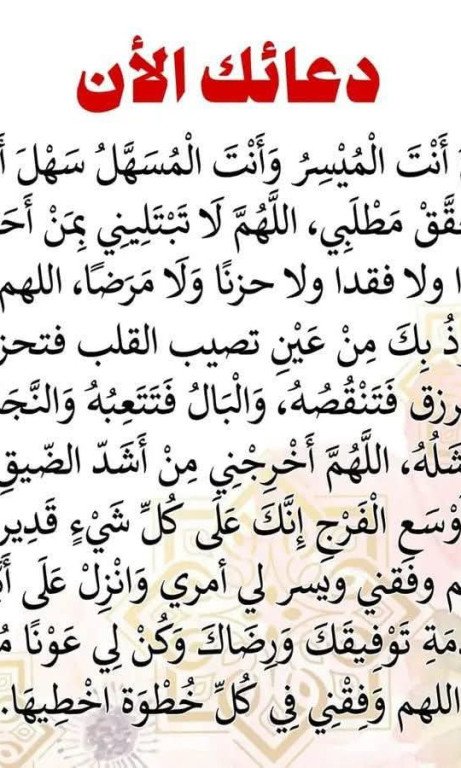 دعائك الأن
أَنْتَ الْمُيْسِرُ وَأَنْتَ الْمُسَهَّلُ سَهْلَ
مَطْلَبِي، اللَّهُمَّ لَا تَبْتَلِينِي بِمَنْ
ولا فقدا ولا حزنًا وَلَا مَرَضًا، اللهم
بِكَ مِنْ عَيْنِ تصيب القلب فتحز
رزق فَتَنْقُصُهُ، وَالْبَالُ فَتَتَعِبُهُ وَالنَّجَ
اللَّهُمَّ أَخْرِجْنِي مِنْ أَشَدّ الضّيقِ
وْسَعِ الْفَرْجِ إِنَّكَ عَلَى كُلِّ شَيْءٍ قَدِير
وفقني ويسر لي أمري وَانْزِلْ عَلَى
تَوْفِيقَكَ وَرِضَاكَ وَكُنْ لِي عَوْنًا
اللهم وَفِقْنِي فِي كُلِّ خُطْوَة اخْطِيهَا.